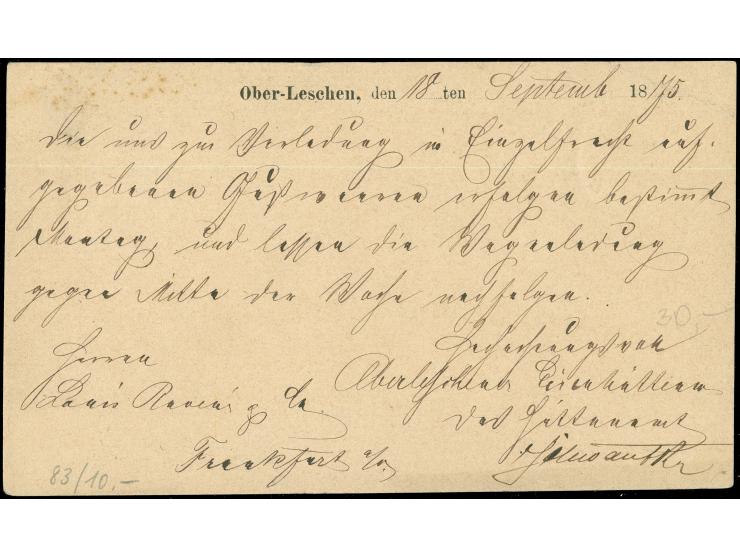 Ober-Leschen, den 18 ten Septemb 1875.
Die uns zur Verladung in Einzelfracht auf-
gegebenen Gußwaaren erfolgen bestimmt
Montag, und lassen die Wagenladung
gegen Mitte der Woche nachfolgen.
30,-
Hochachtungsvoll
Herren Oberleschener Eisenhütten
Louis & Co. Das Hüttenamt
Frankfurt a/O.
83/10.-